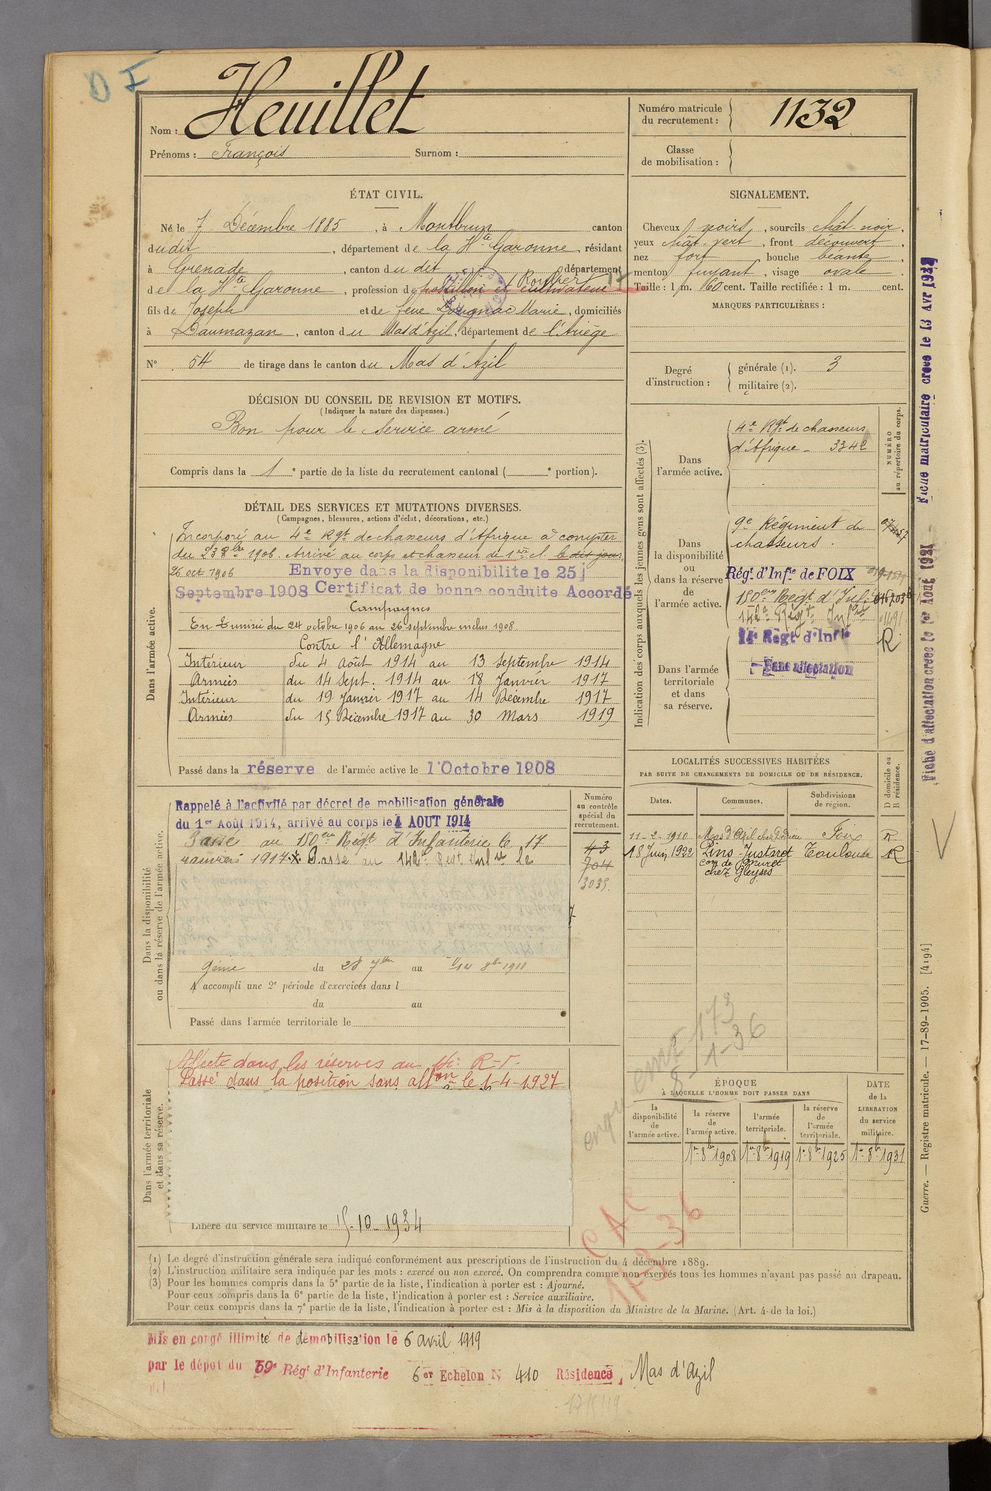 D F
Nom : Heuillet
Prénoms : François Surnom :
Numéro matricule du recrutement : 1132
Classe de mobilisation :
ÉTAT CIVIL.
Né le 7 Décembre 1885, à Montbrun canton
dudit, département de la Hte Garonne, résidant
à Grenade, canton du dit département
de la Hte Garonne, profession de postillon et cultivateur
fils de Joseph et de feue Marie, domiciliés
à Daumazan, canton du Mas d'Azil, département de l'Ariège
N° 54 de tirage dans le canton du Mas d'Azil
SIGNALEMENT.
Cheveux noirs, sourcils chât noir,
yeux chât. vert, front découvert,
nez fort, bouche béante,
menton fuyant, visage ovale.
Taille : 1 m. 60 cent. Taille rectifiée : 1 m. cent.
MARQUES PARTICULIÈRES :
Degré d'instruction : générale (1). 3
militaire (2).
DÉCISION DU CONSEIL DE REVISION ET MOTIFS.
(Indiquer la nature des dispenses.)
Bon pour le service armé
Compris dans la 1e partie de la liste du recrutement cantonal ( e portion).
DÉTAIL DES SERVICES ET MUTATIONS DIVERSES.
(Campagnes, blessures, actions d'éclat, décorations, etc.)
Dans l'armée active.
Incorporé au 4e Rgt de chasseurs d'Afrique à compter
du 23 8bre 1906. Arrivé au corps et chasseur de 1re cl. le dit jour
26 oct 1906 Envoyé dans la disponibilité le 25
Septembre 1908 Certificat de bonne conduite Accordé
Campagnes
En Tunisie du 24 octobre 1906 au 26 septembre inclus 1908
Contre l'Allemagne
Intérieur du 4 Août 1914 au 13 Septembre 1914
Armées du 14 Sept. 1914 au 18 Janvier 1917
Intérieur du 19 Janvier 1917 au 14 Décembre 1917
Armées du 15 Décembre 1917 au 30 Mars 1919
Passé dans la réserve de l'armée active le 1 Octobre 1908
Indication des corps auxquels les jeunes gens sont affectés (3).
NUMÉRO au répertoire du corps.
Dans l'armée active.
4e Rgt de chasseurs
d'Afrique - 3342
Dans la disponibilité ou dans la réserve de l'armée active.
9e Régiment de
chasseurs.
Régt d'Infie de FOIX
180eme Regt d'Infie
142e Regt Infie
14e Régt d'Infie
R
Sans affectation
Dans l'armée territoriale et dans sa réserve.
Dans la disponibilité ou dans la réserve de l'armée active.
Rappelé à l'activité par décret de mobilisation générale
du 1er Août 1914, arrivé au corps le 4 AOUT 1914
Passé au 180eme Régt d'Infanterie le 17
janvier 1917. Passé au 142e Regt Inf le
Génie du 28 7bre au 14 8bre 1911
A accompli une 2e période d'exercices dans l
du au
Passé dans l'armée territoriale le
Numéro au contrôle spécial du recrutement.
43
704
3035
LOCALITÉS SUCCESSIVES HABITÉES
PAR SUITE DE CHANGEMENTS DE DOMICILE OU DE RÉSIDENCE.
Dates. Communes. Subdivisions de region. D domicile ou R résidence.
11-2-1910 Mas d'Azil Foix R
18 Juin 1922 Pins-Justaret Toulouse R
con de Muret
chez Gleyses
Dans l'armée territoriale et dans sa réserve.
Affecté dans les réserves au 14e R.I.
Passé dans la position sans affon le 1-4-1927
Libéré du service militaire le 15-10-1934
173
8-1-36
CAC
17-2-36
ÉPOQUE
À LAQUELLE L'HOMME DOIT PASSER DANS
la disponibilité de l'armée active. la réserve de l'armée active. l'armée territoriale. la réserve de l'armée territoriale.
DATE de la LIBÉRATION du service militaire.
1er 8bre 1908 1er 8bre 1919 1er 8bre 1925 1er 8bre 1931
(1) Le degré d'instruction générale sera indiqué conformément aux prescriptions de l'instruction du 4 décembre 1889.
(2) L'instruction militaire sera indiquée par les mots : exercé ou non exercé. On comprendra comme non exercés tous les hommes n'ayant pas passé au drapeau.
(3) Pour les hommes compris dans la 5e partie de la liste, l'indication à porter est : Ajourné.
Pour ceux compris dans la 6e partie de la liste, l'indication à porter est : Service auxiliaire.
Pour ceux compris dans la 7e partie de la liste, l'indication à porter est : Mis à la disposition du Ministre de la Marine. (Art. 4 de la loi.)
Mis en congé illimité de démobilisation le 6 avril 1919
par le dépôt du 59e Régt d'Infanterie 6er Echelon N 410 Résidence, Mas d'Azil
Fiche d'affectation créée le 1er Août 1921 Fiche matriculaire créée le 13 Avr
Guerre. — Registre matricule. — 17-89-1905. [4194]